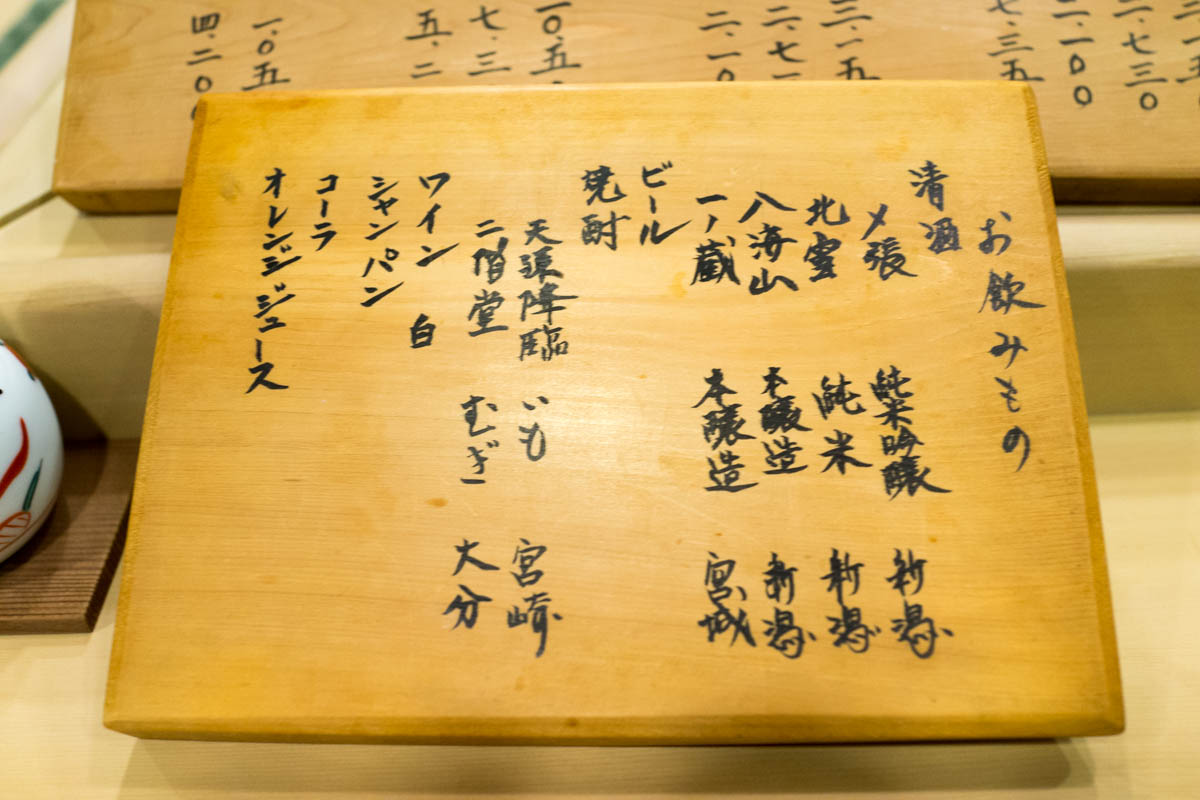 二.七三〇
二.一〇〇
七.三五
三.一五
二.七
二.一〇
一〇.五
七.三
五.二
一.〇五
四.二〇〇
お飲みもの
清酒
〆張 純米吟醸 新潟
北雪 純米 新潟
八海山 本醸造 新潟
一ノ蔵 本醸造 宮城
ビール
焼酎
天孫降臨 いも 宮崎
二階堂 むぎ 大分
ワイン 白
シャンパン
コーラ
オレンジジュース